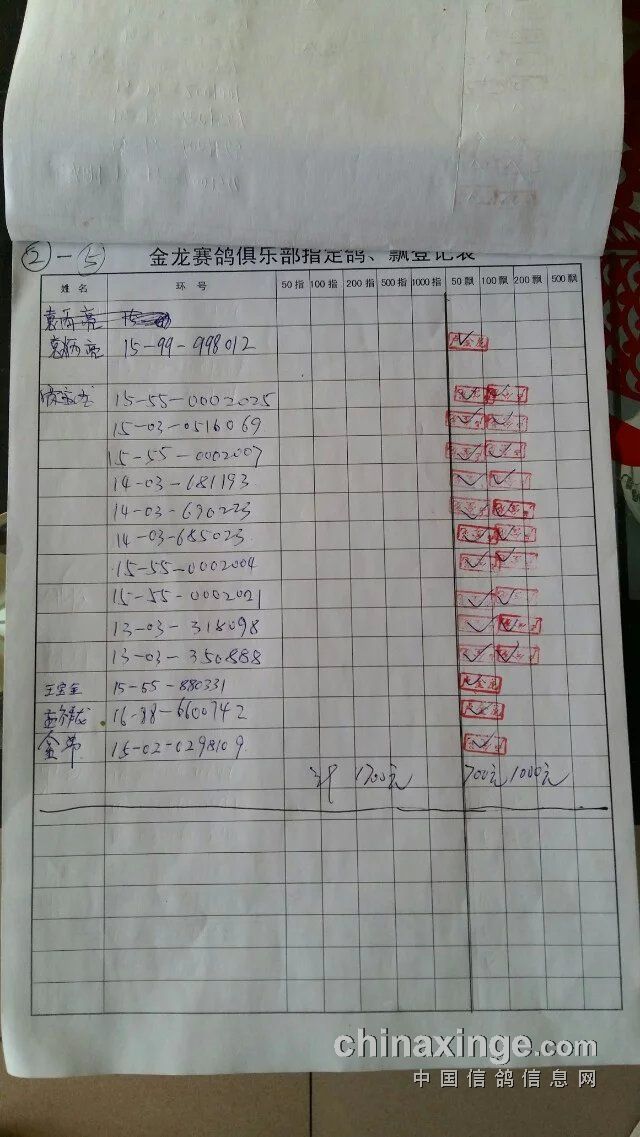 ②-⑤
金龙赛鸽俱乐部指定鸽、飘登记表
姓名 环号 50指 100指 200指 500指 1000指 50飘 100飘 200飘 500飘
15-99-998012
15-55-0002025
15-03-0516069
15-55-0002007
14-03-681193
14-03-690223
14-03-685023
15-55-0002004
15-55-0002021
13-03-318098
13-03-350888
王宝金 15-55-880331
16-88-6600742
金弟 15-02-0298109
1700元 700元 1000元
chinaxinge.com
中国信鸽信息网